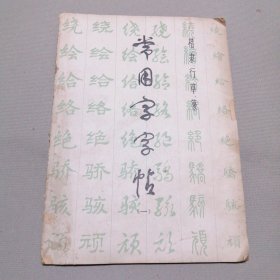 楷隶行草篆
常用字字帖
一
绕 绕 绕 绕 繞
绘 绘 绘 绘
给 给 给 给
络 络 络 络
绝 绝 绝 绝
骄 骄 骄 骄 驕
骇 骇 骇 骇
顽 顽 顽